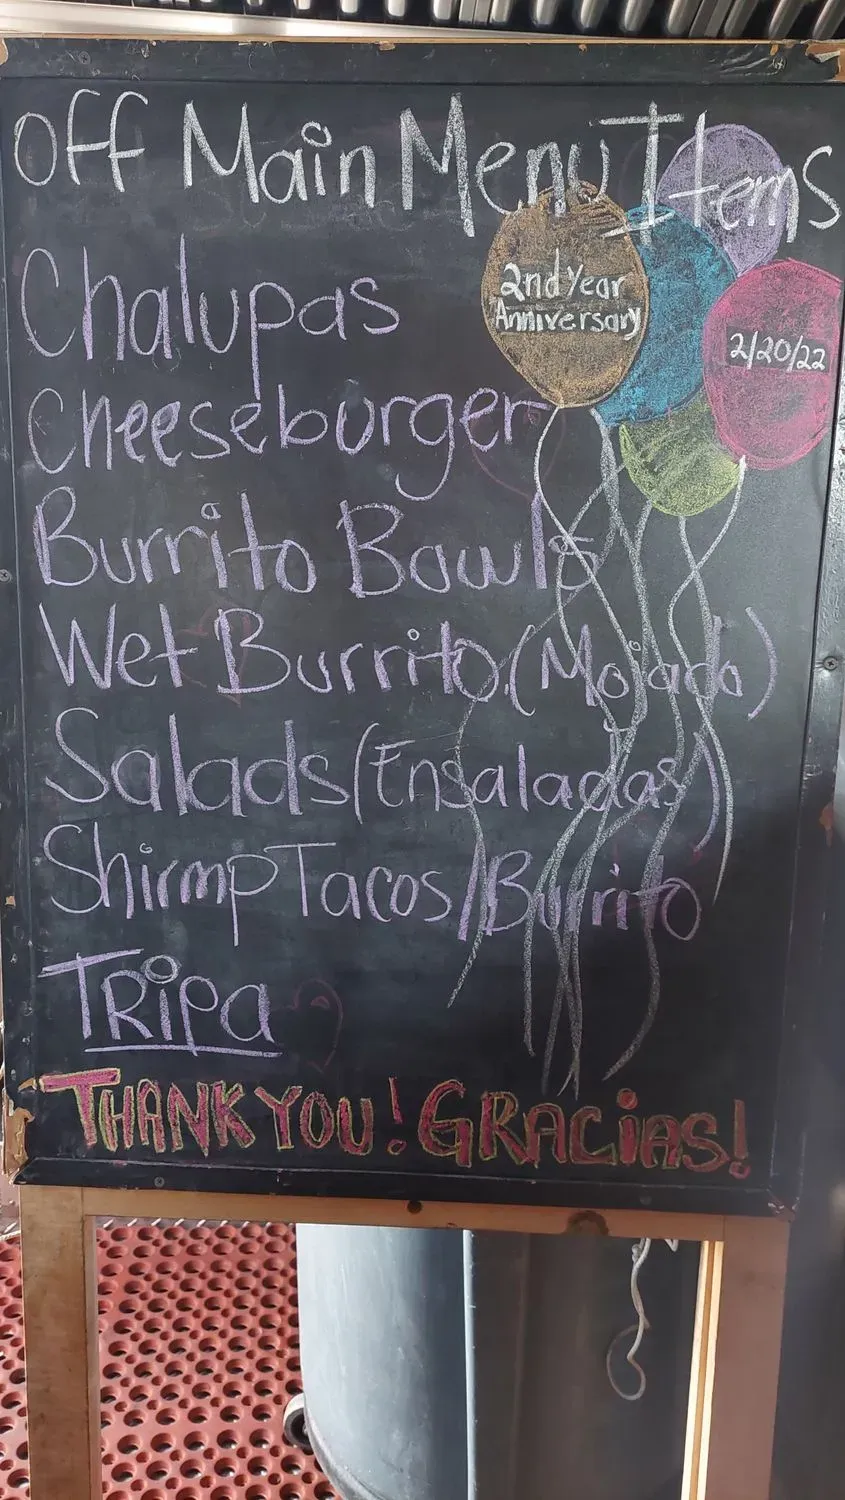 Off Main Menu Items
2nd Year
Anniversary
2/20/22
Chalupas
Cheeseburger
Burrito Bowls
Wet Burrito (Mojado)
Salads (Ensaladas)
Shirmp Tacos/Burrito
TRiPa
THANK YOU! GRACiAS!